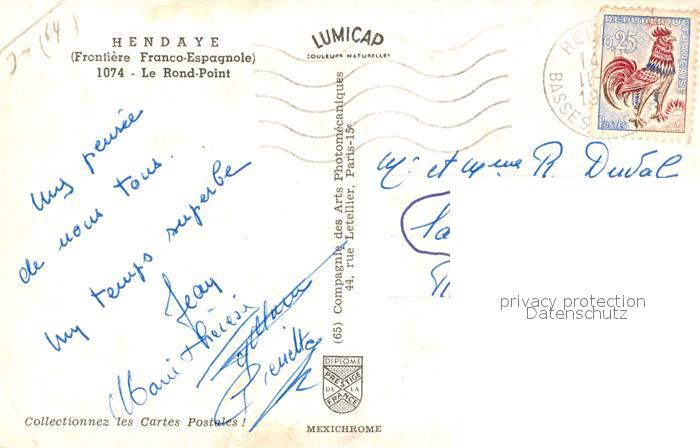 (64)
HENDAYE
(Frontière Franco-Espagnole)
1074 - Le Rond-Point
LUMICAP
COULEURS NATURELLES
0,25
REPUBLIQUE FRANÇAISE
POSTES
HEN
BASSES
Une pensée
de nous tous.
Un temps superbe
Jean
Marie Thérèse
Pierrette
(65) Compagnie des Arts Photomécaniques
44, rue Letellier, Paris-15e
Mr et Mme R. Duval
privacy protection
Datenschutz
DIPLOME
PRESTIGE
DE LA
FRANCE
MEXICHROME
Collectionnez les Cartes Postales !